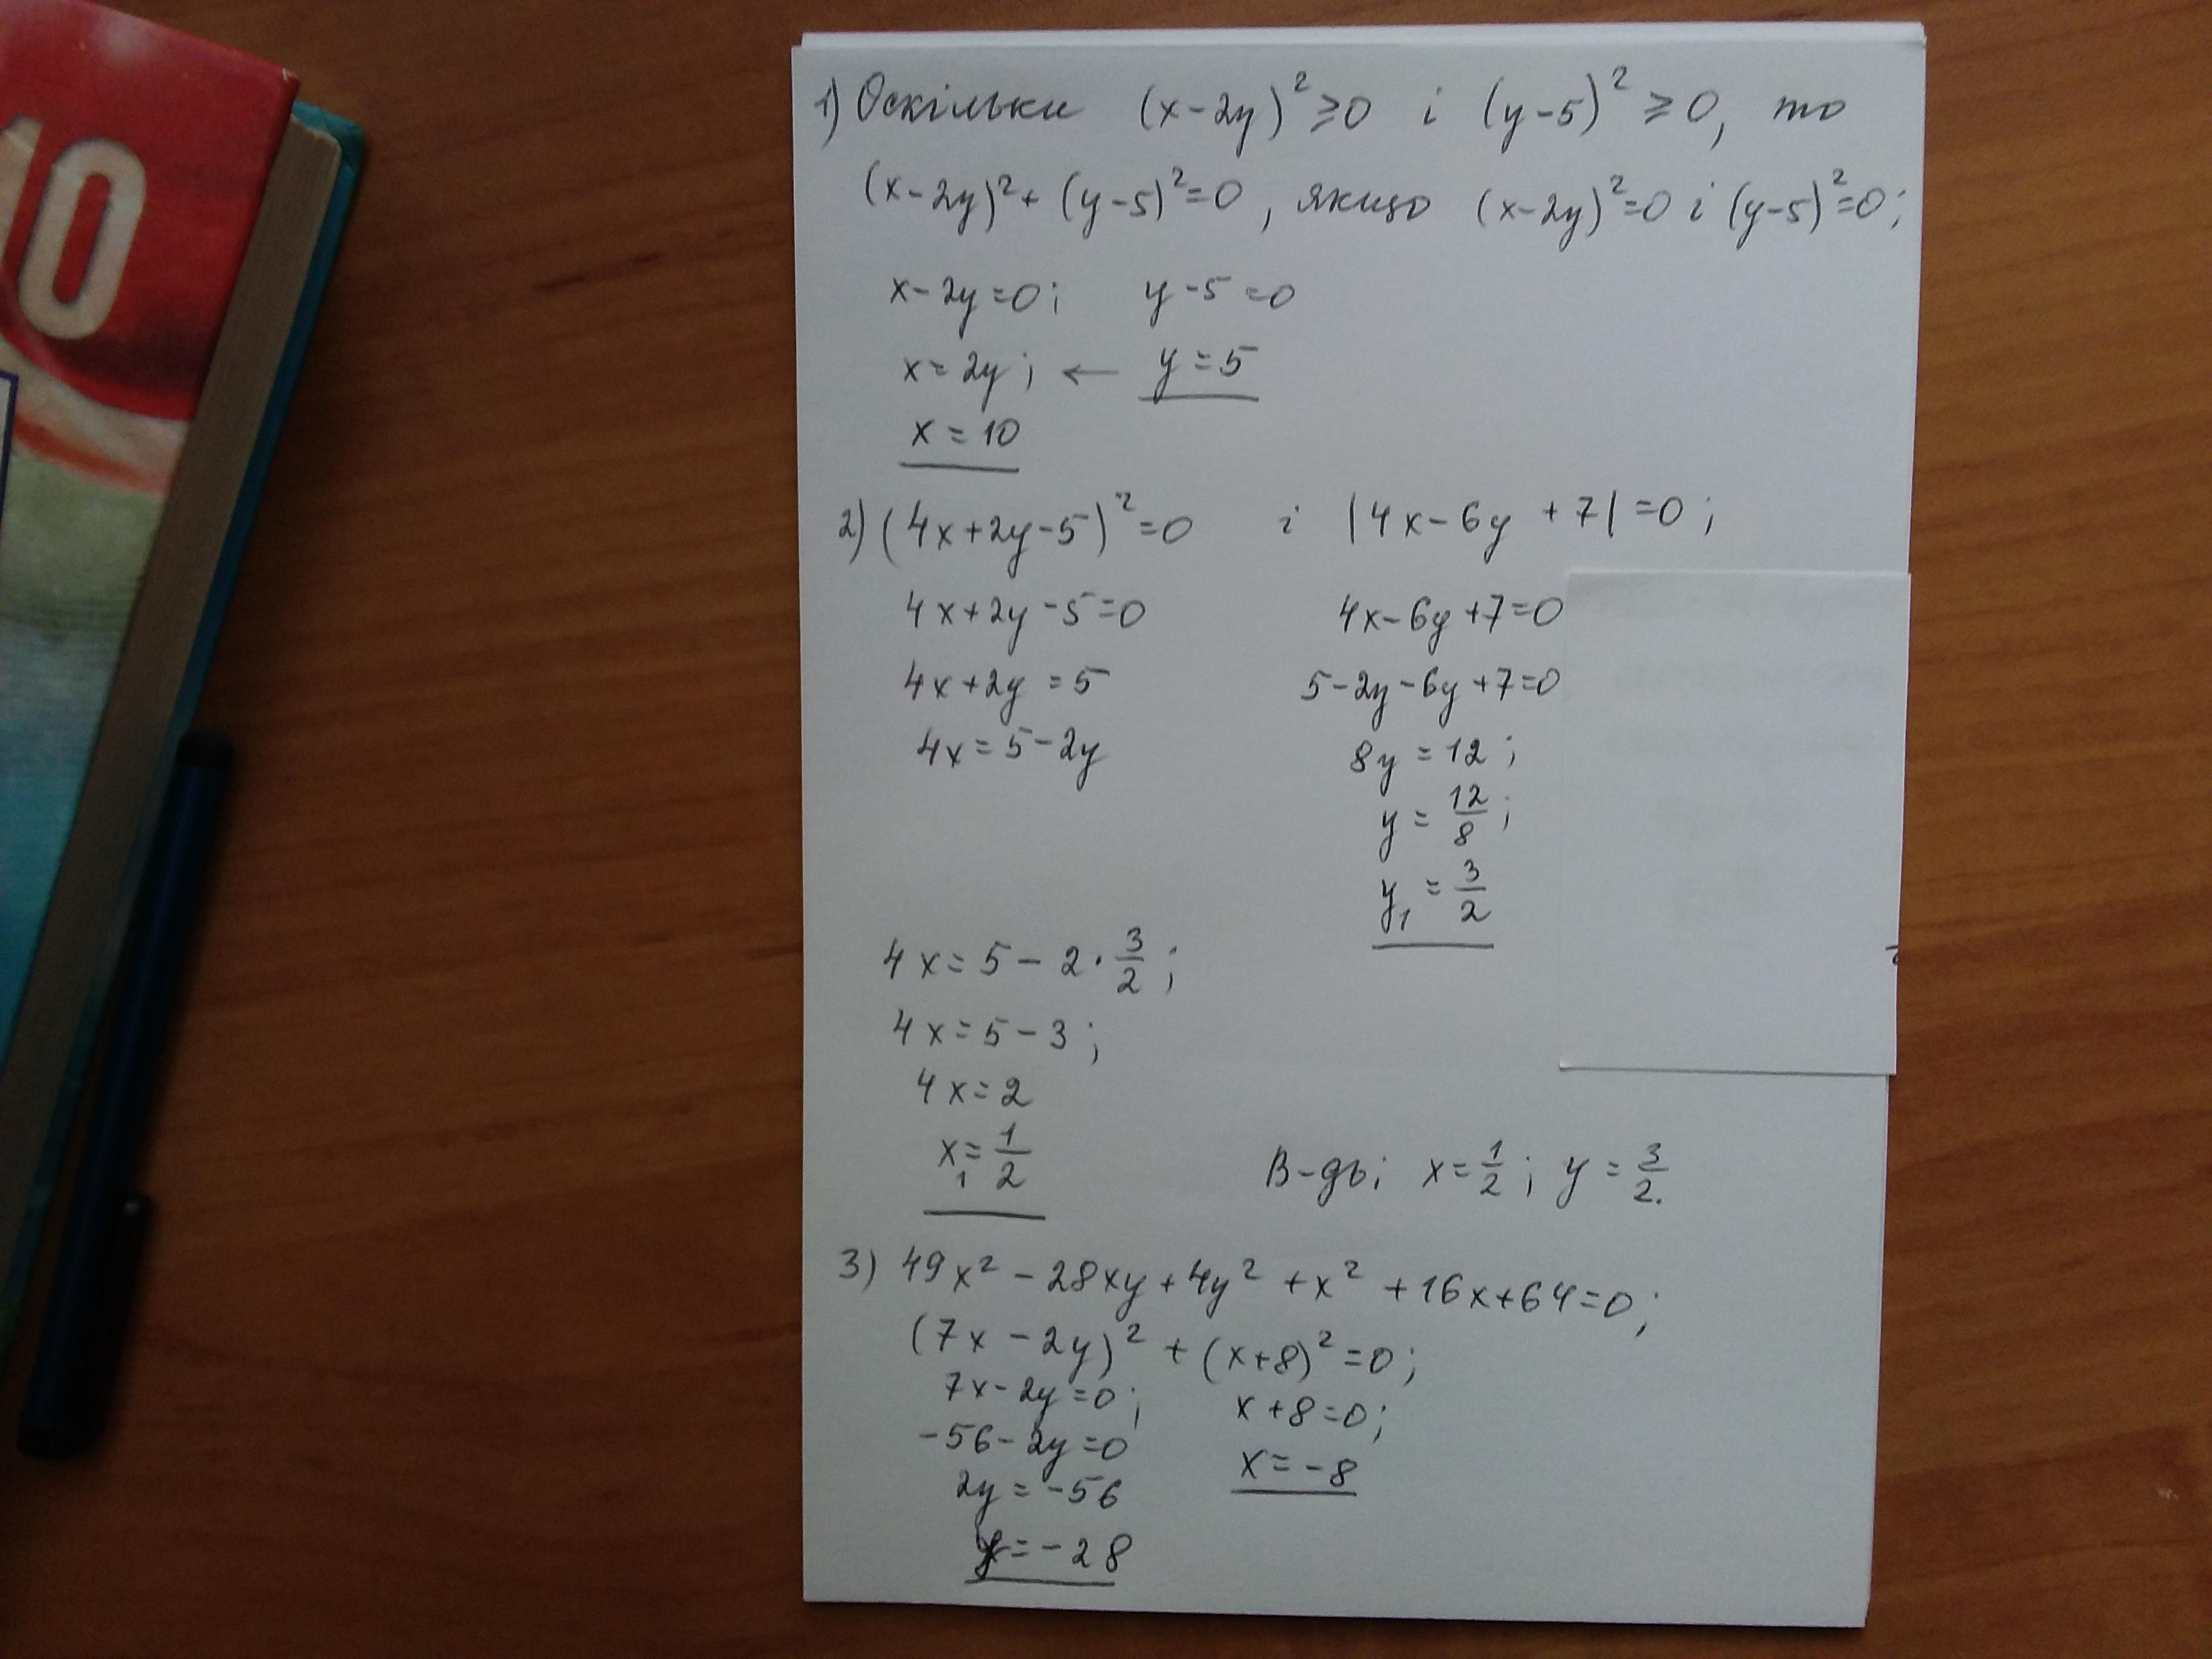 10
1) Оскільки (x-2y)²≥0 і (y-5)²≥0, то
(x-2y)²+(y-5)²=0, якщо (x-2y)²=0 і (y-5)²=0;
x-2y=0; y-5=0
x=2y; ← y=5
x=10
2) (4x+2y-5)²=0 і |4x-6y+7|=0;
4x+2y-5=0 4x-6y+7=0
4x+2y=5 5-2y-6y+7=0
4x=5-2y 8y=12;
y=12/8;
y₁=3/2
4x=5-2·3/2;
4x=5-3;
4x=2
x₁=1/2 В-дь; x=1/2; y=3/2.
3) 49x²-28xy+4y²+x²+16x+64=0;
(7x-2y)²+(x+8)²=0;
7x-2y=0; x+8=0;
-56-2y=0
2y=-56 x=-8
y=-28